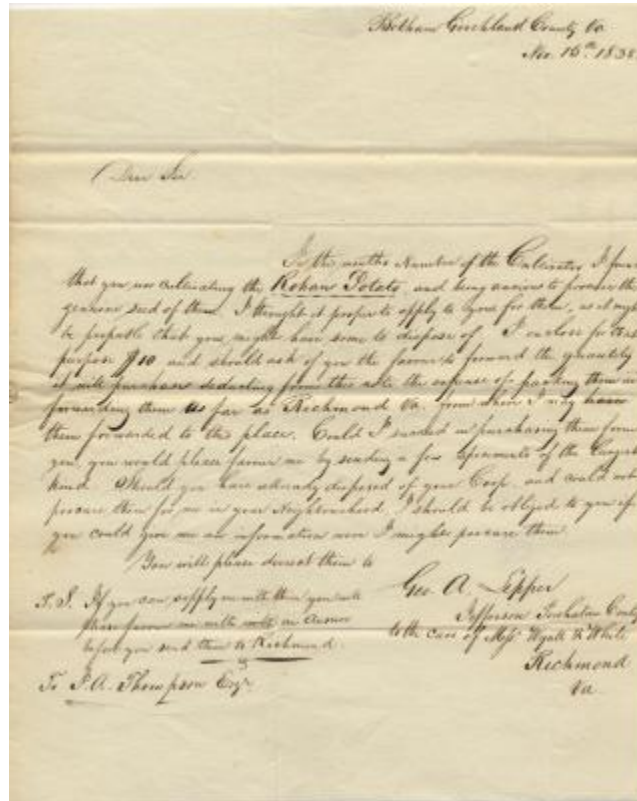 Goochland County Va
Nov. 16th 1838
Dear Sir
In the ninth Number of the Cultivator I
that you are cultivating the Rohan Potato, and being anxious to procure the
genuine seed of them, I thought it proper to apply to you for them, as it
be probable that you might have some to dispose of. I enclose for that
purpose $10 and should ask of you the favour to forward the quantity
it will purchase deducting from this note the expense of packing them
forwarding them as far as Richmond Va. from where I may have
them forwarded to this place. Could I succeed in purchasing them from
you, you would please favour me by sending a few specimens of the largest
kind. Should you have already disposed of your Crop, and could not
procure them for me in your Neighbourhood, I should be obliged to you if
you could give me an information were I might procure them.
You will please direct them to
Geo. A.
Jefferson
to the care of Messrs Wyatt & White
Richmond
Va
P.S. If you can supply me with them you will
please favour me with an answer
before you send them to Richmond.
To J. A. Thompson Esqr